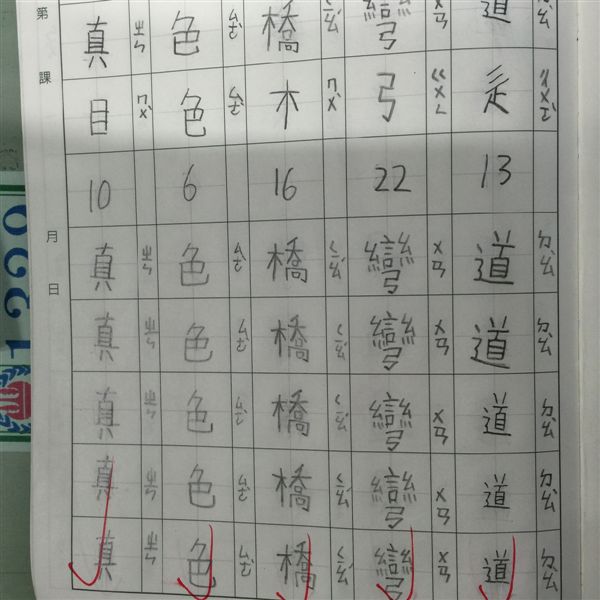 道辵13道道道道道
ㄉㄠˋ ㄔㄨㄛˋ ㄉㄠˋ ㄉㄠˋ ㄉㄠˋ ㄉㄠˋ ㄉㄠˋ
彎弓22彎彎彎彎彎
ㄨㄢ ㄍㄨㄥ ㄨㄢ ㄨㄢ ㄨㄢ ㄨㄢ ㄨㄢ
橋木16橋橋橋橋橋
ㄑㄧㄠˊ ㄇㄨˋ ㄑㄧㄠˊ ㄑㄧㄠˊ ㄑㄧㄠˊ ㄑㄧㄠˊ ㄑㄧㄠˊ
色色6色色色色色
ㄙㄜˋ ㄙㄜˋ ㄙㄜˋ ㄙㄜˋ ㄙㄜˋ ㄙㄜˋ ㄙㄜˋ
真目10真真真真真
ㄓㄣ ㄇㄨˋ ㄓㄣ ㄓㄣ ㄓㄣ ㄓㄣ ㄓㄣ
第 課 月 日